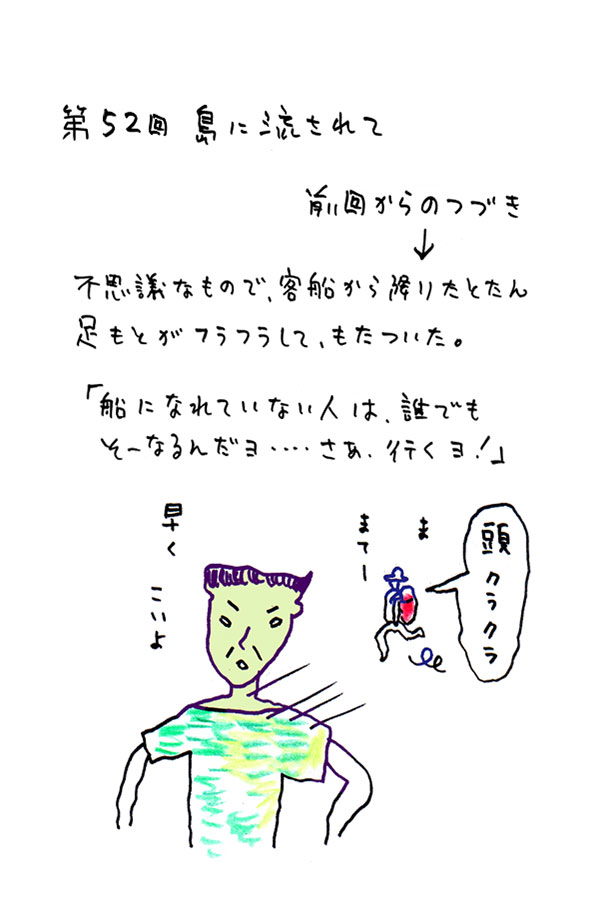 第52回 島に流されて
前回からのつづき
↓
不思議なもので、客船から降りたとたん
足もとがフラフラして、もたついた。
「船になれていない人は、誰でも
そーなるんだヨ‥‥さあ、行くヨ!」
頭クラクラ
ま
まてー
早く
こいよ